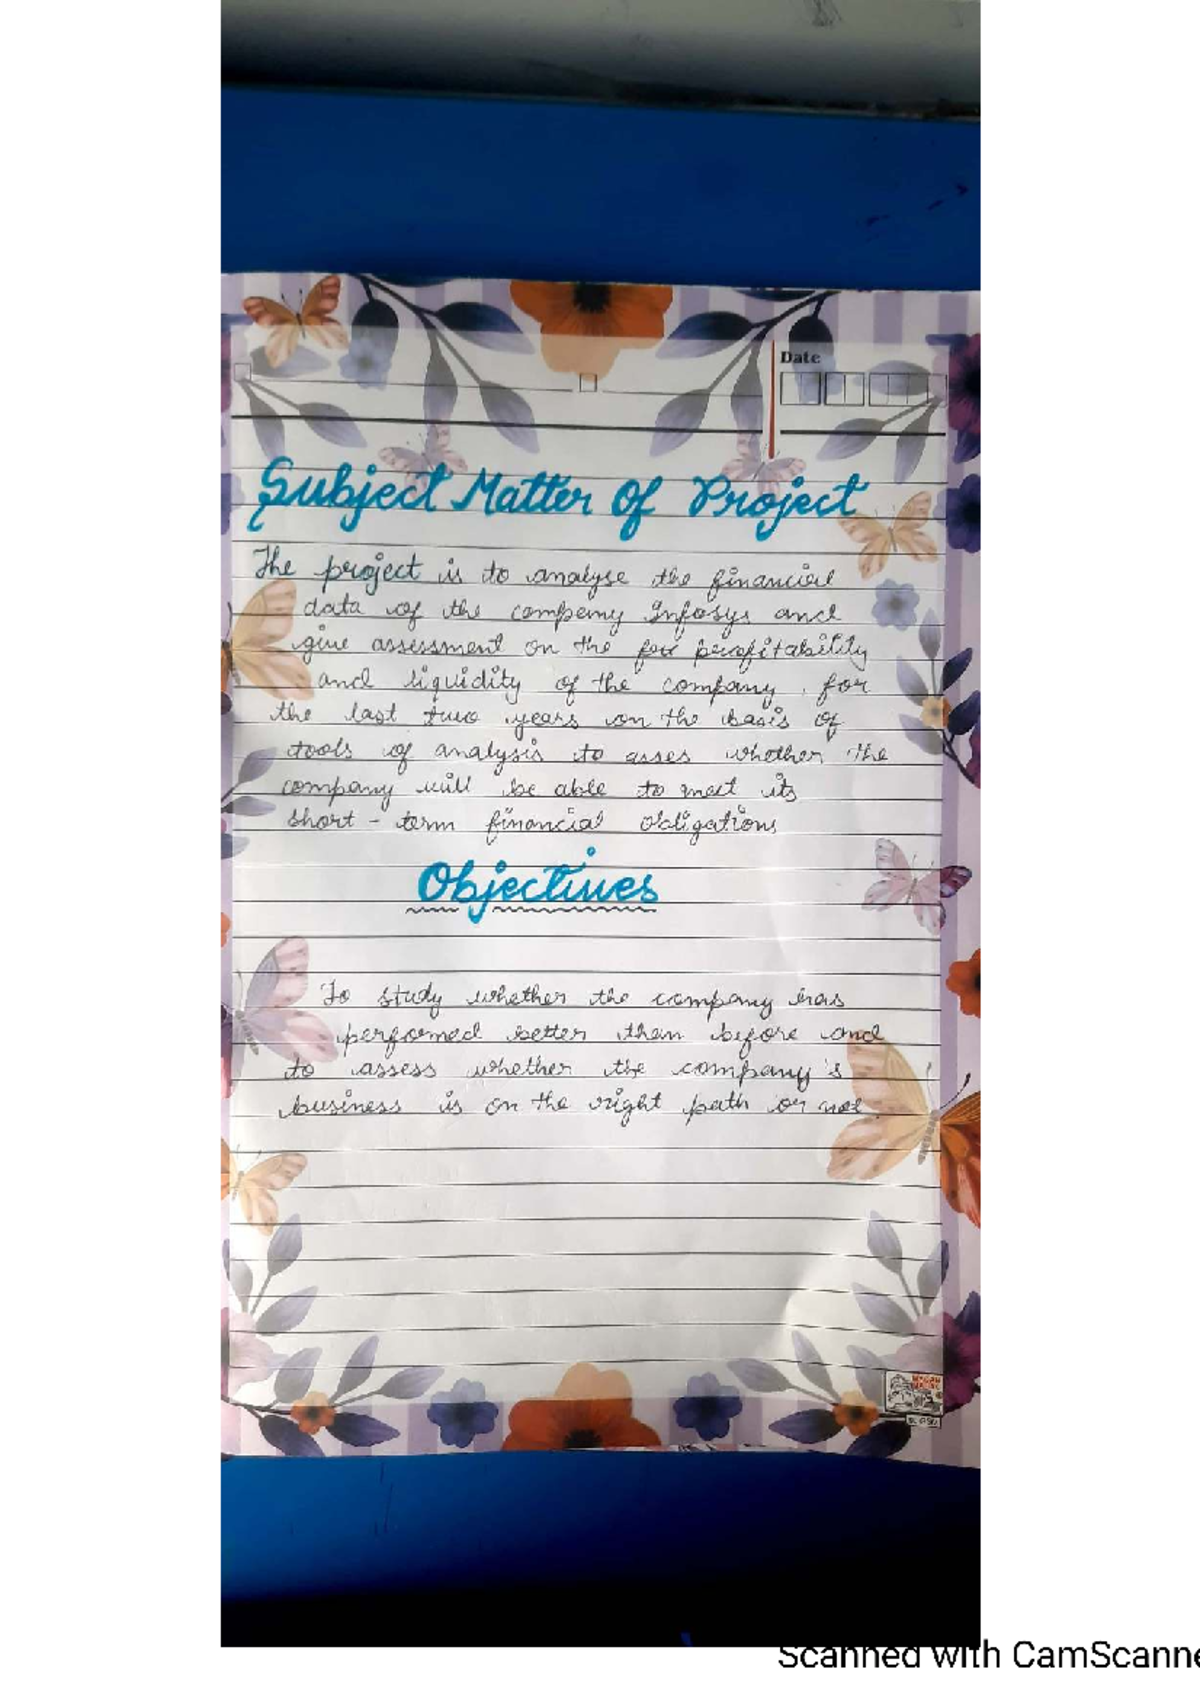 Date
Subject Matter Of Project
The project is to analyse the financial
data of the company Infosys and
give assessment on the profitability
and liquidity of the company, for
the last two years on the basis of
tools of analysis to asses whether the
company will be able to meet its
short - term financial obligations
Objectives
To study whether the company has
performed better then before and
to assess whether the company's
business is on the right path or not
Scanned with CamScanne